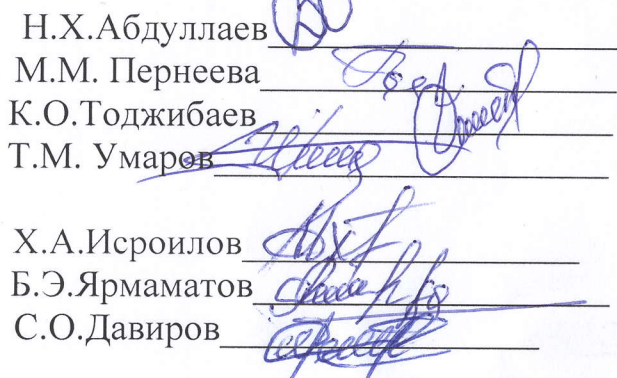 Н.Х.Абдуллаев
М.М. Пернеева
К.О.Тоджибаев
Т.М. Умаров
Х.А.Исроилов
Б.Э.Ярмаматов
С.О.Давиров